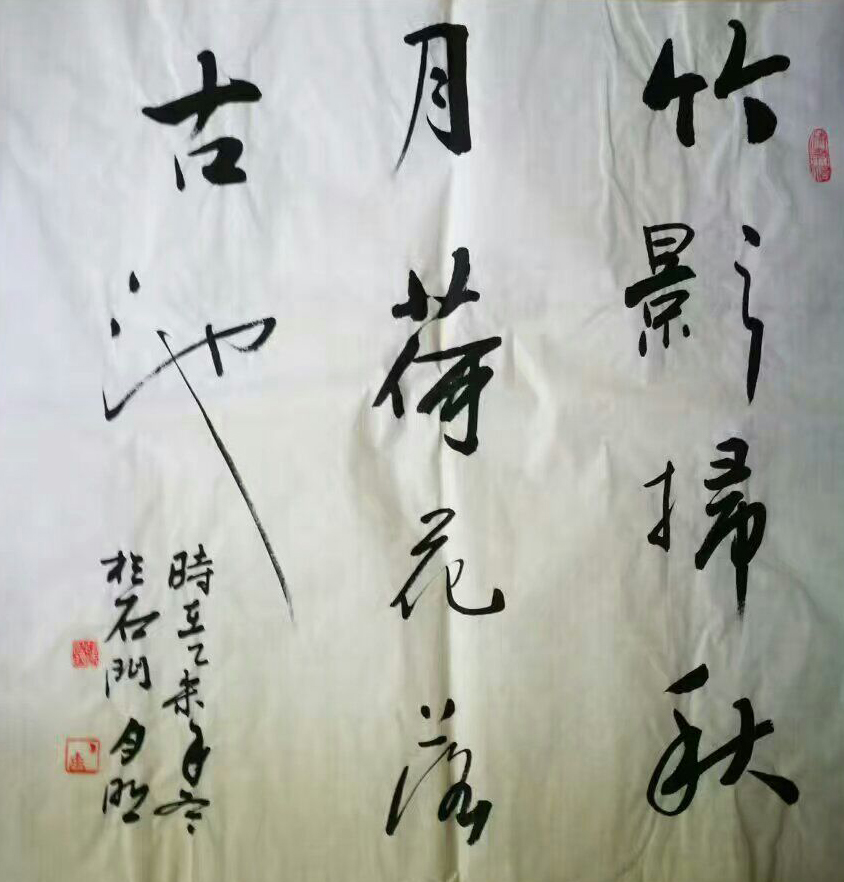 竹影掃秋
月荷花落
古池
時在乙未年冬
於石門月明